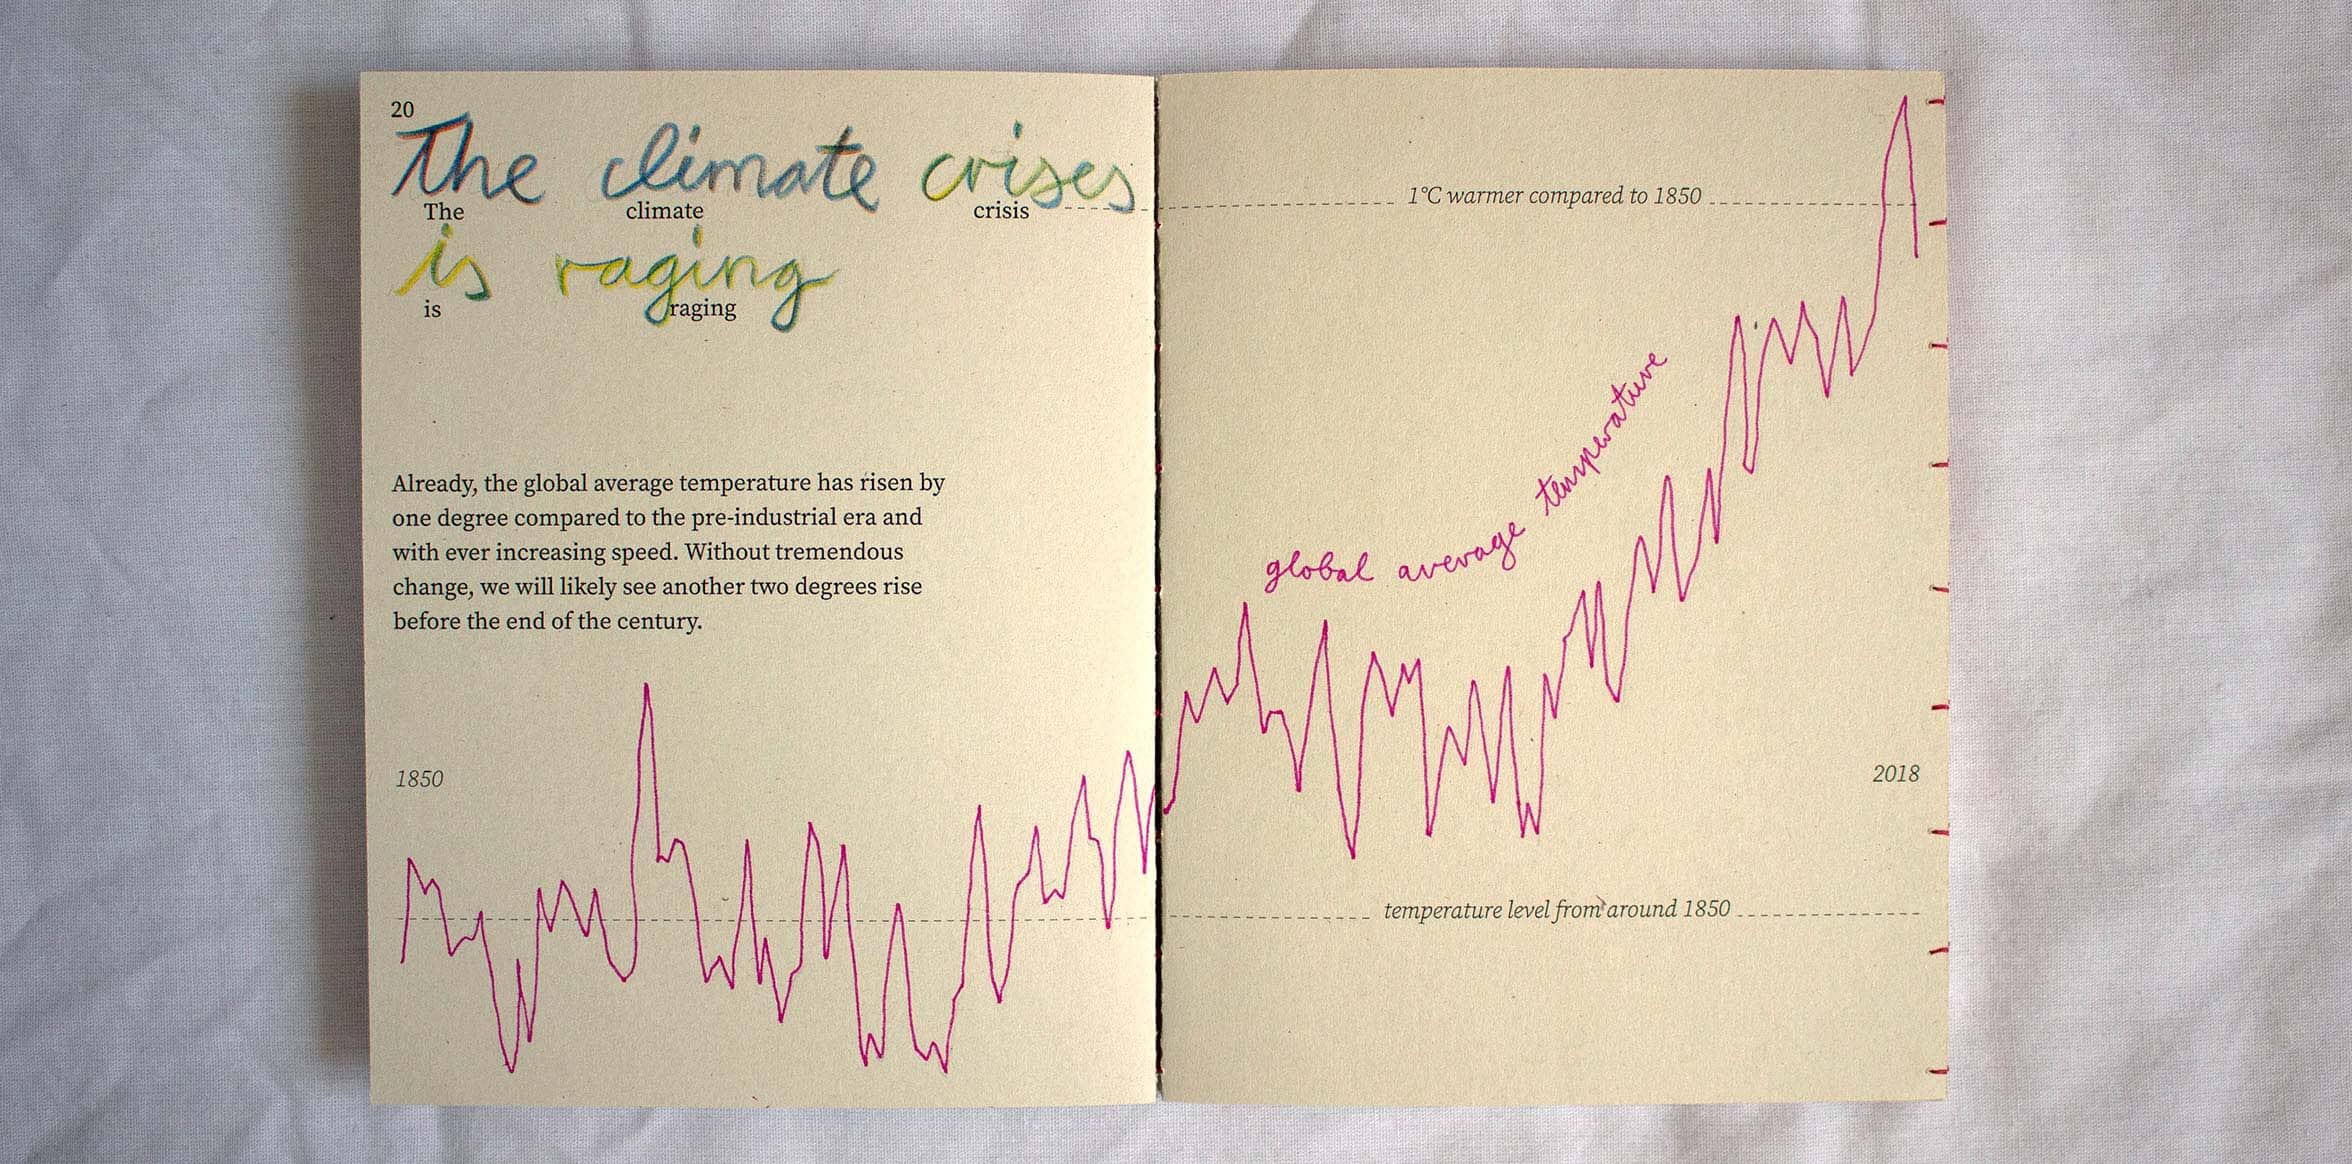 20
The climate crises
The climate crisis
is raging
is raging
Already, the global average temperature has risen by
one degree compared to the pre-industrial era and
with ever increasing speed. Without tremendous
change, we will likely see another two degrees rise
before the end of the century.
1850
1°C warmer compared to 1850
global average temperature
2018
temperature level from around 1850